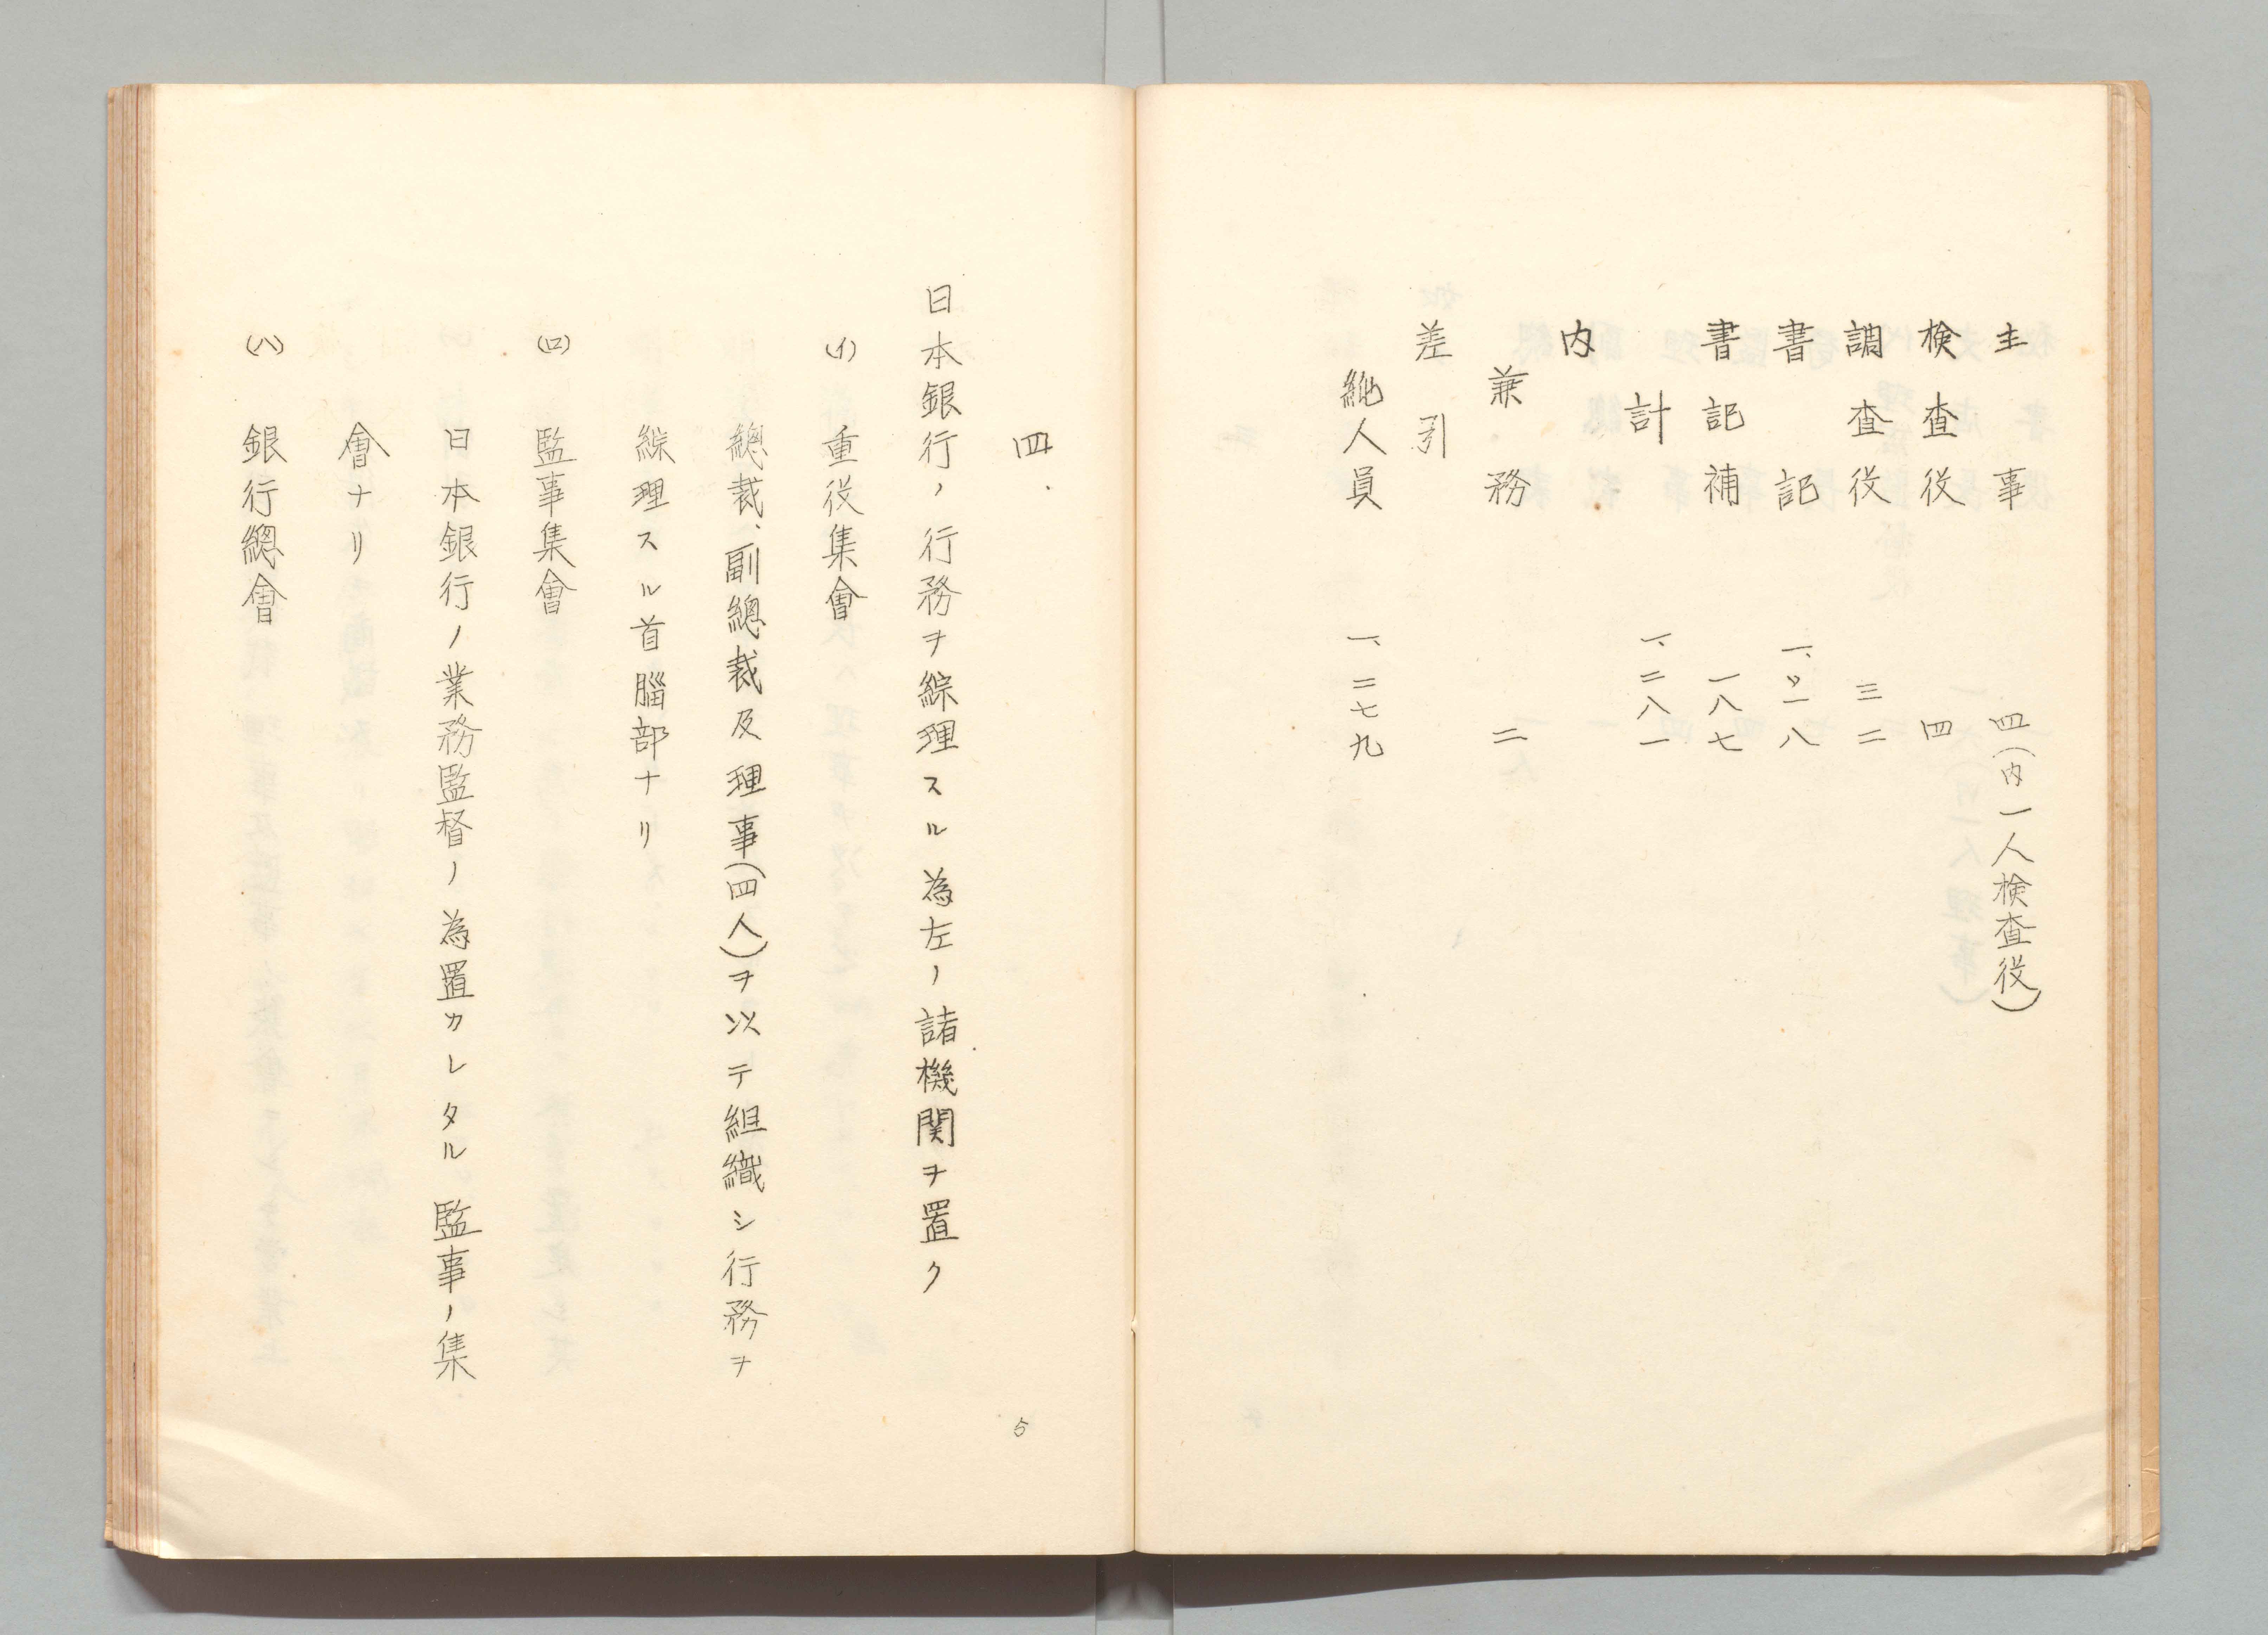 主事 四(内一人検査役)
検査役 四
調査役 三二
書記 一、〇一八
書記補 一八七
計 一、二八一
内
兼務 二
差引
純人員 一、二七九
四.
日本銀行ノ行務ヲ綜理スル為左ノ諸機関ヲ置ク
(イ) 重役集會
總裁、副總裁及理事(四人)ヲ以テ組織シ行務ヲ
綜理スル首腦部ナリ
(ロ) 監事集會
日本銀行ノ業務監督ノ為置カレタル監事ノ集
會ナリ
(ハ) 銀行總會
5